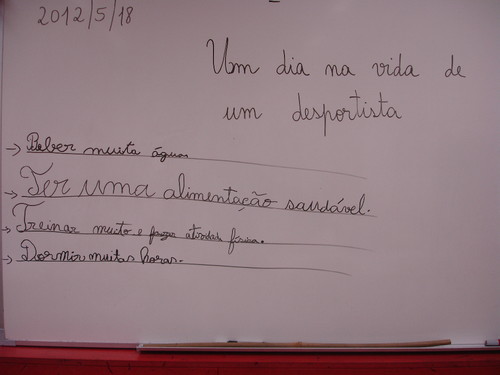 2012/5/18
Um dia na vida de
um desportista
→ Beber muita água.
→ Ter uma alimentação saudável.
→ Treinar muito e fazer atividade física.
→ Dormir muitas horas.